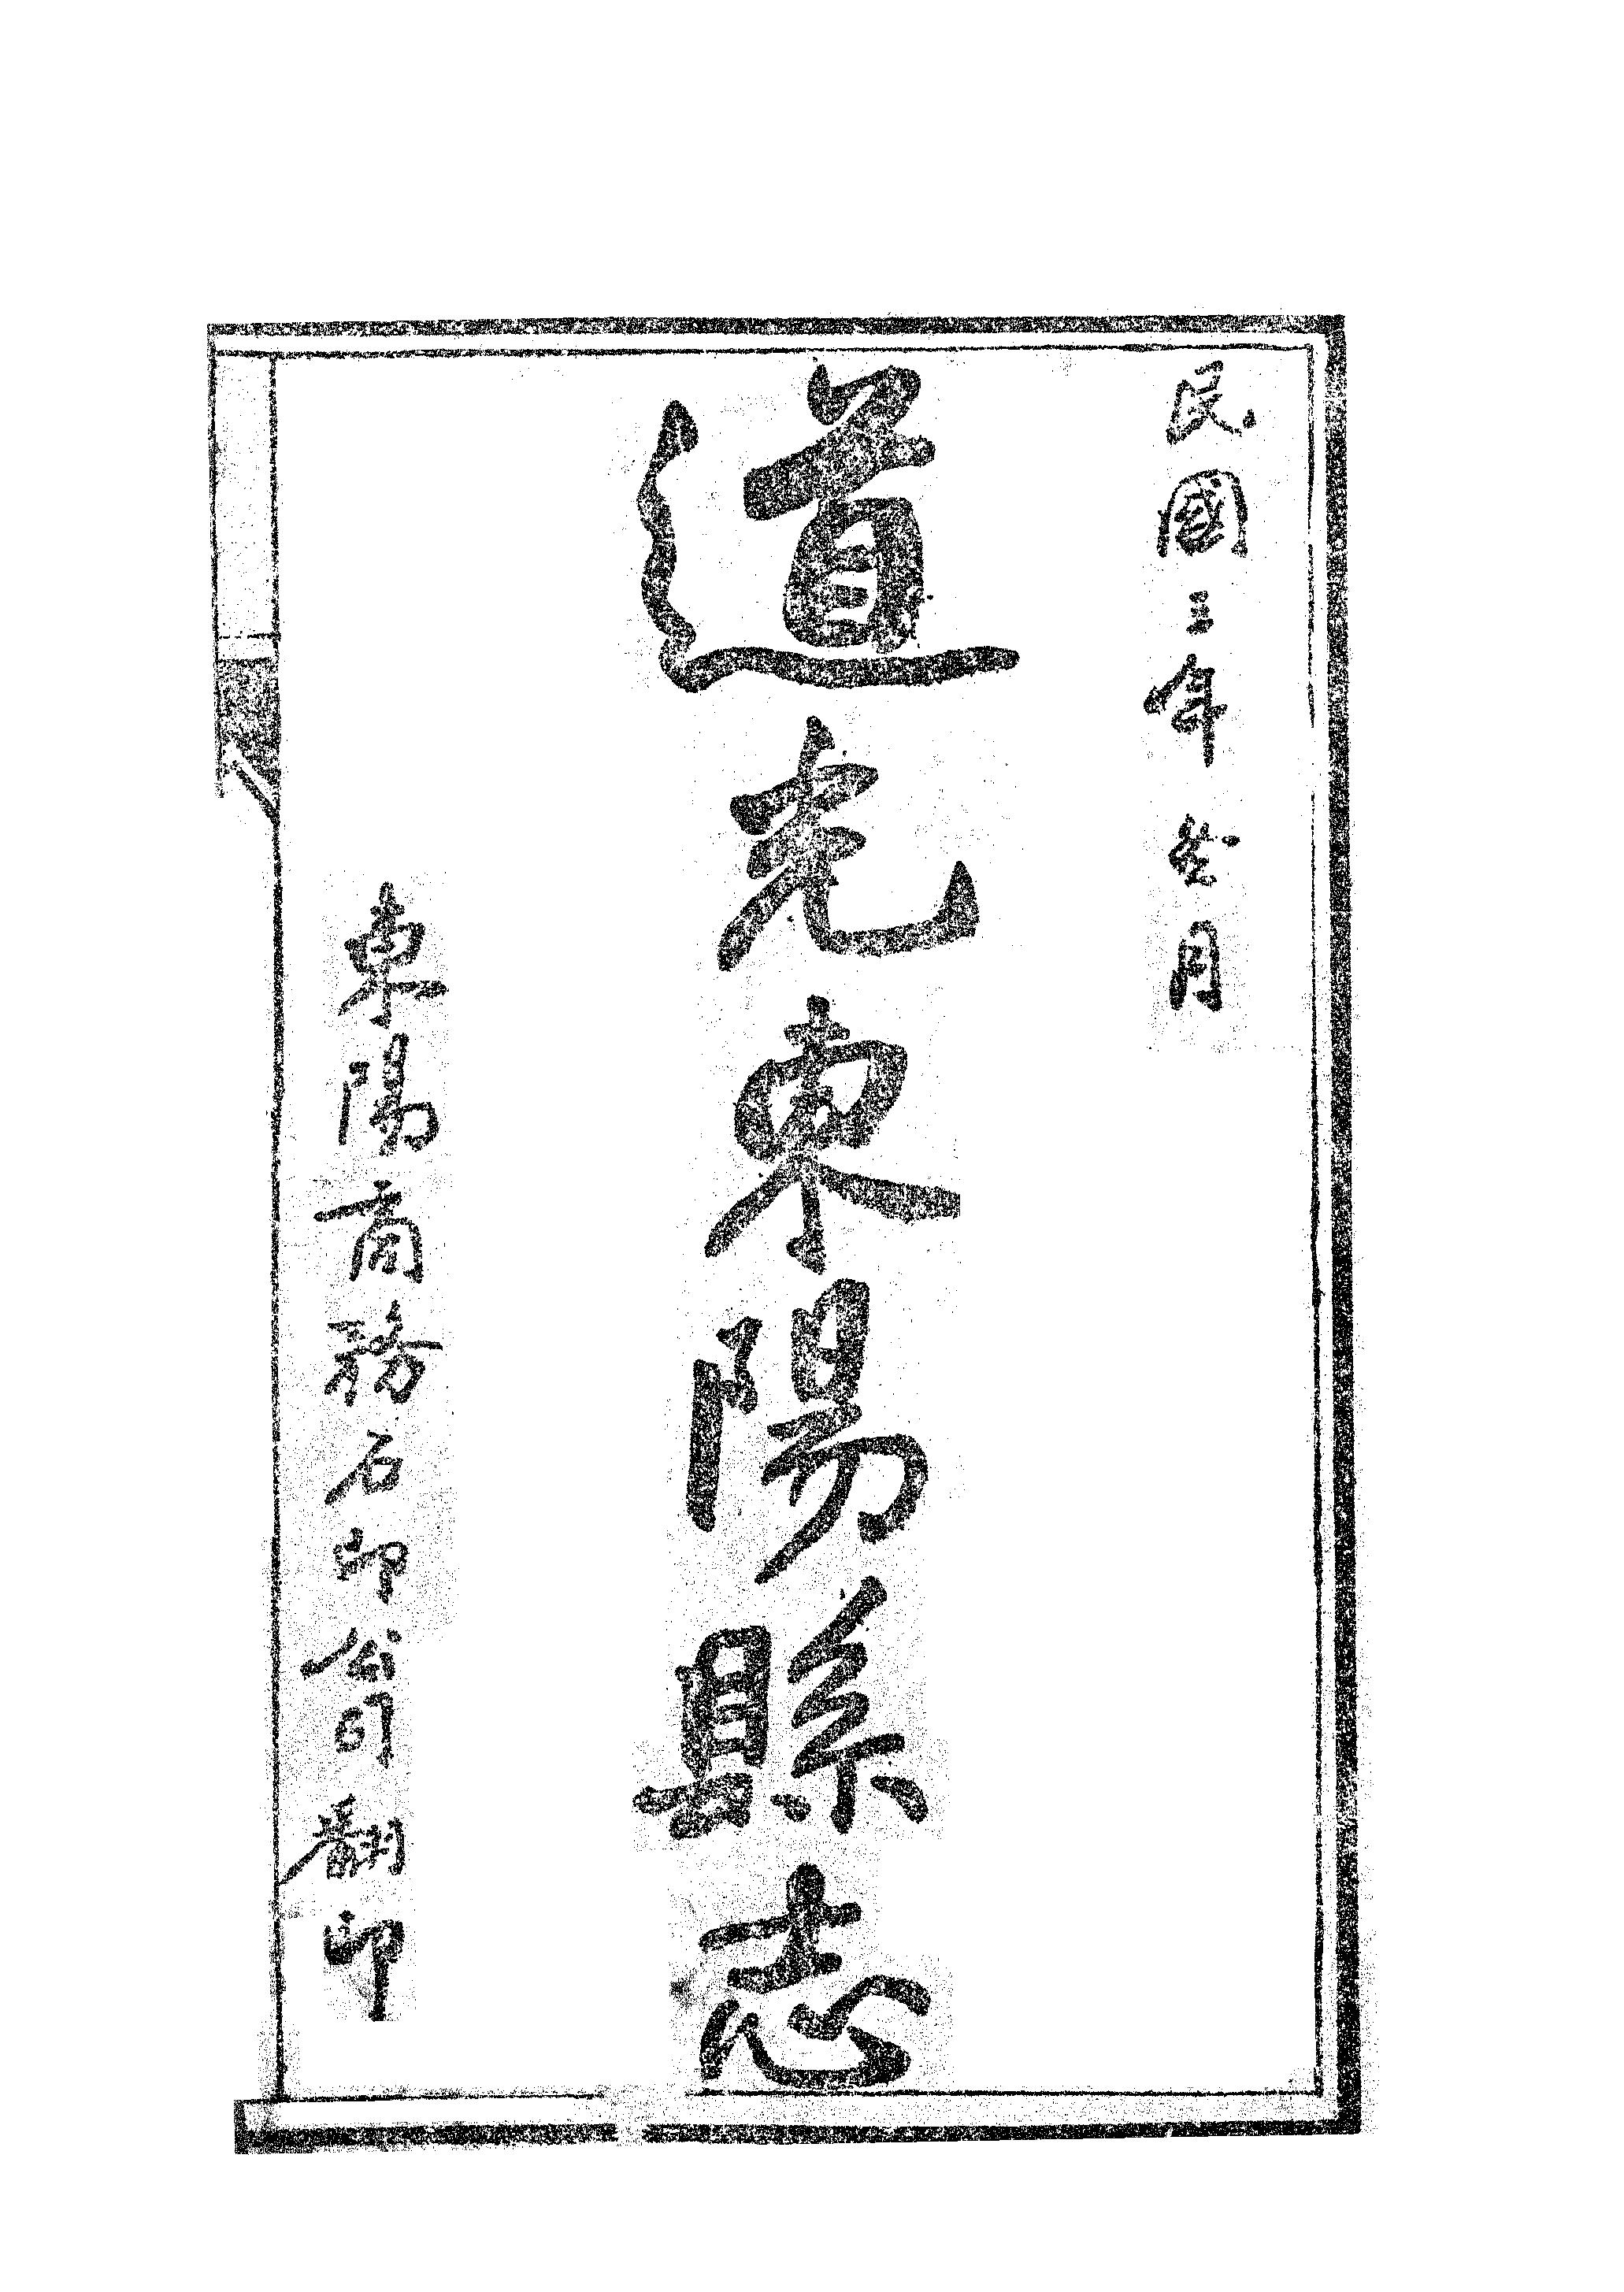 民國三年月
道光東陽縣志
東陽商務石印公司翻印